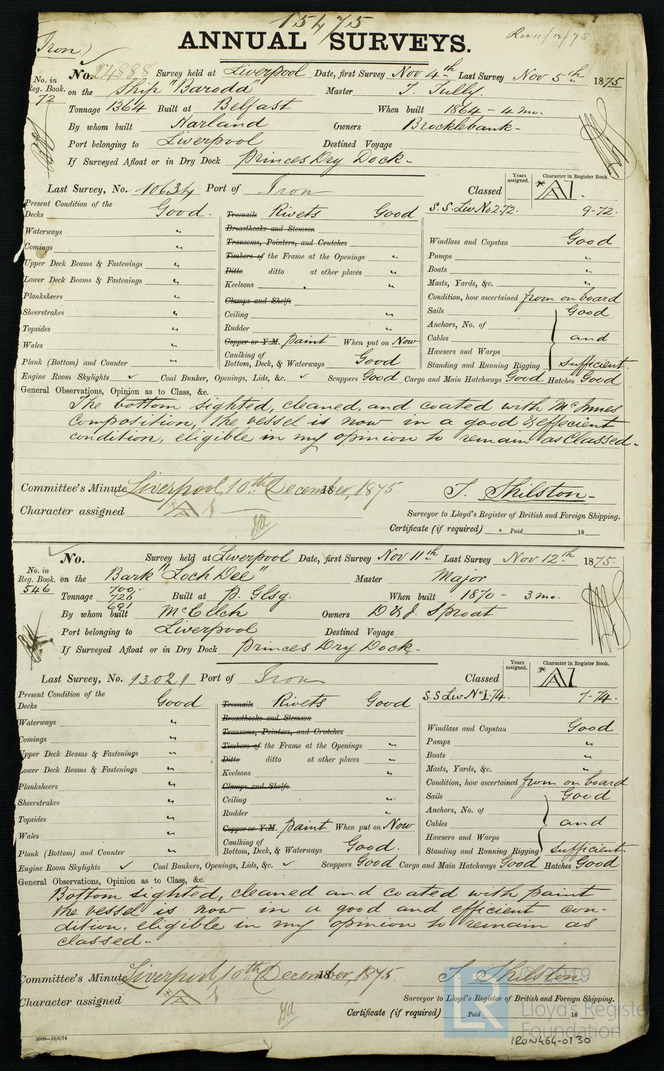 15475
Iron)
Rec 11/12/75
ANNUAL SURVEYS.
No. 24888 Survey held at Liverpool Date, first Survey Nov 4th Last Survey Nov 5th 1875
No. in Reg. Book. 72 on the Ship "Baroda" Master T. Tully.
Tonnage 1364 Built at Belfast When built 1864 - 4 mo.
By whom built Harland Owners Brocklebank -
Port belonging to Liverpool Destined Voyage
If Surveyed Afloat or in Dry Dock Princes Dry Dock -
Years assigned. Character in Register Book.
Last Survey, No. 10634 Port of Iron Classed *A1.
Present Condition of the
Decks Good. Treenails Rivets Good S.S. Liv No 2.72. 9-72.
Waterways " Breasthooks and Stemson
Comings " Transoms, Pointers, and Crutches Windlass and Capstan Good
Timbers of the Frame at the Openings " Pumps "
Upper Deck Beams & Fastenings " Ditto ditto at other places " Boats "
Lower Deck Beams & Fastenings " Keelsons " Masts, Yards, &c. "
Planksheers " Clamps and Shelfs Condition, how ascertained from on board
Sheerstrakes " Ceiling " Sails Good
Topsides " Rudder " Anchors, No. of
Wales " Copper or Y.M. Paint When put on Now Cables and
Caulking of Hawsers and Warps
Plank (Bottom) and Counter " Bottom, Deck, & Waterways Good Standing and Running Rigging sufficient
Engine Room Skylights ✓ Coal Bunker, Openings, Lids, &c. ✓ Scuppers Good Cargo and Main Hatchways Good Hatches Good
General Observations, Opinion as to Class, &c.
The bottom sighted, cleaned, and coated with McInnes
composition, the vessel is now in a good & effecient
condition, eligible in my opinion to remain as Classed -
Committee's Minute Liverpool, 10th December, 1875 T. Shilston -
Character assigned *A1 Surveyor to Lloyd's Register of British and Foreign Shipping.
Certificate (if required) Paid 18
No. Survey held at Liverpool Date, first Survey Nov 11th Last Survey Nov 12th 1875.
No. in Reg. Book. 546 on the Bark "Loch Dee" Master Major
700.
Tonnage 726 Built at P. Glsg. When built 1870 - 3 mo.
691
By whom built McCllch Owners D & J. Sproat
Port belonging to Liverpool Destined Voyage
If Surveyed Afloat or in Dry Dock Princes Dry Dock -
Years assigned. Character in Register Book.
Last Survey, No. 13021 Port of Iron Classed *A1
Present Condition of the
Decks Good Treenails Rivets Good S S Liv No 1-74. 7-74.
Waterways " Breasthooks and Stemson Windlass and Capstan Good
Comings " Transoms, Pointers, and Crutches Pumps "
Timbers of the Frame at the Openings "
Upper Deck Beams & Fastenings " Ditto ditto at other places " Boats "
Lower Deck Beams & Fastenings " Keelsons " Masts, Yards, &c. "
Planksheers " Clamps and Shelfs Condition, how ascertained from on board
Sheerstrakes " Ceiling " Sails Good
Topsides " Rudder " Anchors, No. of
Wales " Copper or Y.M. Paint When put on Now Cables and
Caulking of Hawsers and Warps
Plank (Bottom) and Counter " Bottom, Deck, & Waterways Good. Standing and Running Rigging sufficient
Engine Room Skylights ✓ Coal Bunkers, Openings, Lids, &c. ✓ Scuppers Good Cargo and Main Hatchways Good Hatches Good
General Observations, Opinion as to Class, &c.
Bottom sighted, cleaned and coated with paint
the vessel is now in a good and efficient con-
dition, eligible in my opinion to remain as
classed -
Committee's Minute Liverpool, 10th December, 1875 T. Shilston
Character assigned *A1 Surveyor to Lloyd's Register of British and Foreign Shipping.
Certificate (if required) Paid 18
LR
Lloyd's Register
Foundation
IRON464-0130